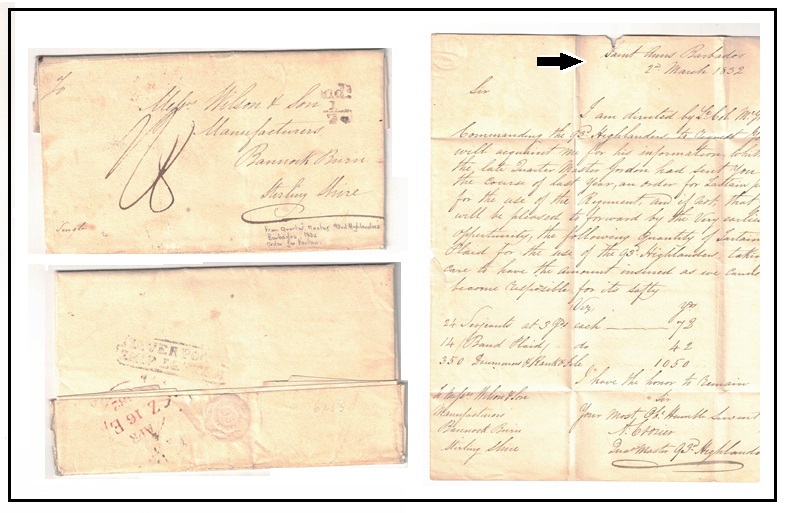 To
Messrs Wilson & Son
Manufacturers
Bannock Burn
Sterling Shire
1/2
From Quarter Master 93rd Highlanders
Barbados, 1832
Order for Tartan
LIVERPOOL
SHIP LETTER
Z 16 E
APR
Saint Anns Barbados
2d March 1832
Sir
I am directed by Lt Col Mc
Commanding the 93d Highlanders to request you
will acquaint me for his information, whether
the late Quarter Master Gordon had sent you in
the course of last year, an order for Tartain
for the use of the Regiment, and if not that
will be pleased to forward by the very earliest
opportunity, the following Quantity of Tartain
Plaid for the use of the 93d Highlanders, taking
care to have the amount insured as we cannot
become responsible for its safty
Viz Yds
24 Serjeants at 3 Yds each 72
14 (Band Plaid) do 42
350 Drummers & Rank & File 1050
I have the honor to remain
Sir
Your Most Obt Humble Servant
Qur Master 93d Highlanders
To Messrs Wilson & Son
Manufactorors
Bannock Burn
Stirling Shire